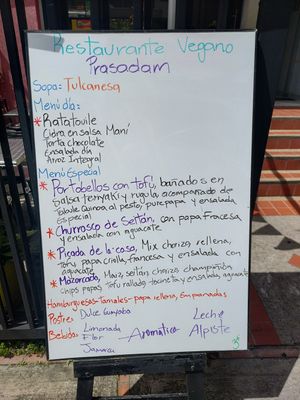 Restaurante Vegano
Prasadam
Sopa: Tulcanesa
Menú día:
* Ratatouile
Cidra en salsa Maní
Torta Chocolate
Ensalada día
Arroz Integral
Menú Especial
* Portobellos con tofú, bañados en
salsa teriyaki y rugula, acompañado de
Quinoa al pesto, pure papa y ensalada
Especial
* Churrasco de Seitán, con papa francesa
y ensalada con aguacate
* Picada de la casa, Mix chorizo, rellena,
Tofu, papa criolla, francesa y ensalada con
aguacate
* Mazorcada, Maiz, seitan chorizo champiñon
chips papas, tofu rallado, tocineta y ensalada, aguacate
Hamburguesas-tamales-papa rellena, Empanadas
Postres: Dulce Guayaba
Bebidas: Limonada
Flor
Jamaica
Aromática
Leche
Alpiste